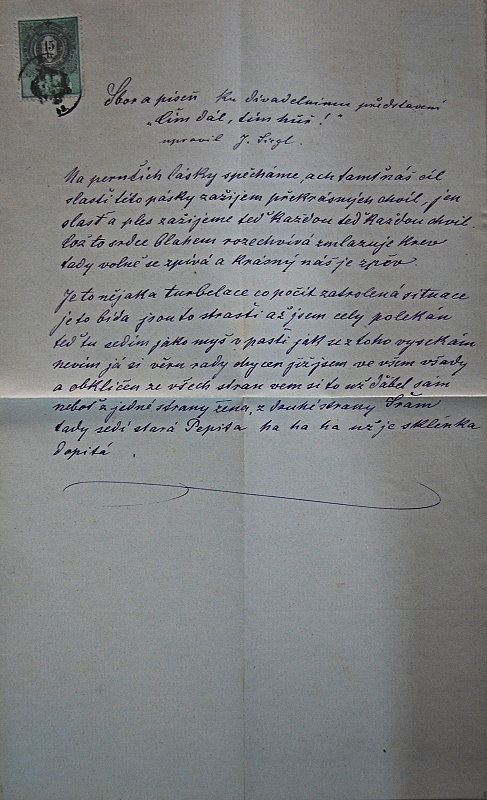 15
Sbor a píseň ku divadelnímu představení
„Čím dál, tím hůř!"
upravil J. Siegl.
Na perutích lásky spěcháme, ach tamť náš cíl
slastí této pásky zažijem překrásných chvil, jen
slasť a ples zažijeme teď každou teď každou chvil.
Což to srdce blahem rozechvívá zmlazuje krev
tady volně se zpívá a krásný náš je zpěv.
Je to nějaká turbelace co počít zatrolená situace
je to bída jsou to strasti až jsem celý polekán
teď tu sedím jako myš v pasti jak se z toho vysekám
nevím já si věru rady chycen již jsem ve všem všady
a obklíčen ze všech stran vem si to už ďábel sám
neboť z jedné strany žena, z druhé strany Srám
tady sedí stará Pepita ha ha ha už je sklínka
dopitá.